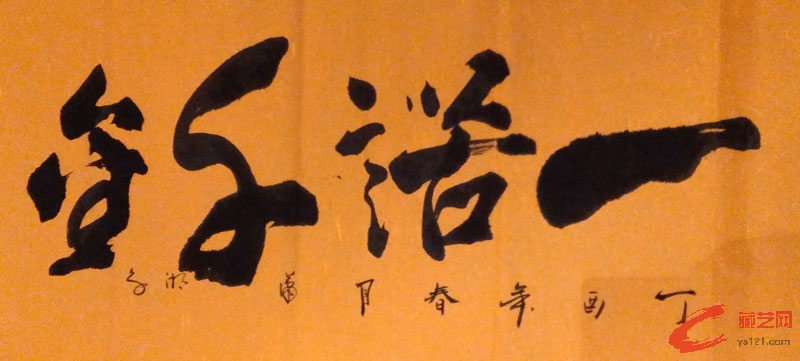 一諾千金
丁酉年春月 湖
藏艺网
ys121.com